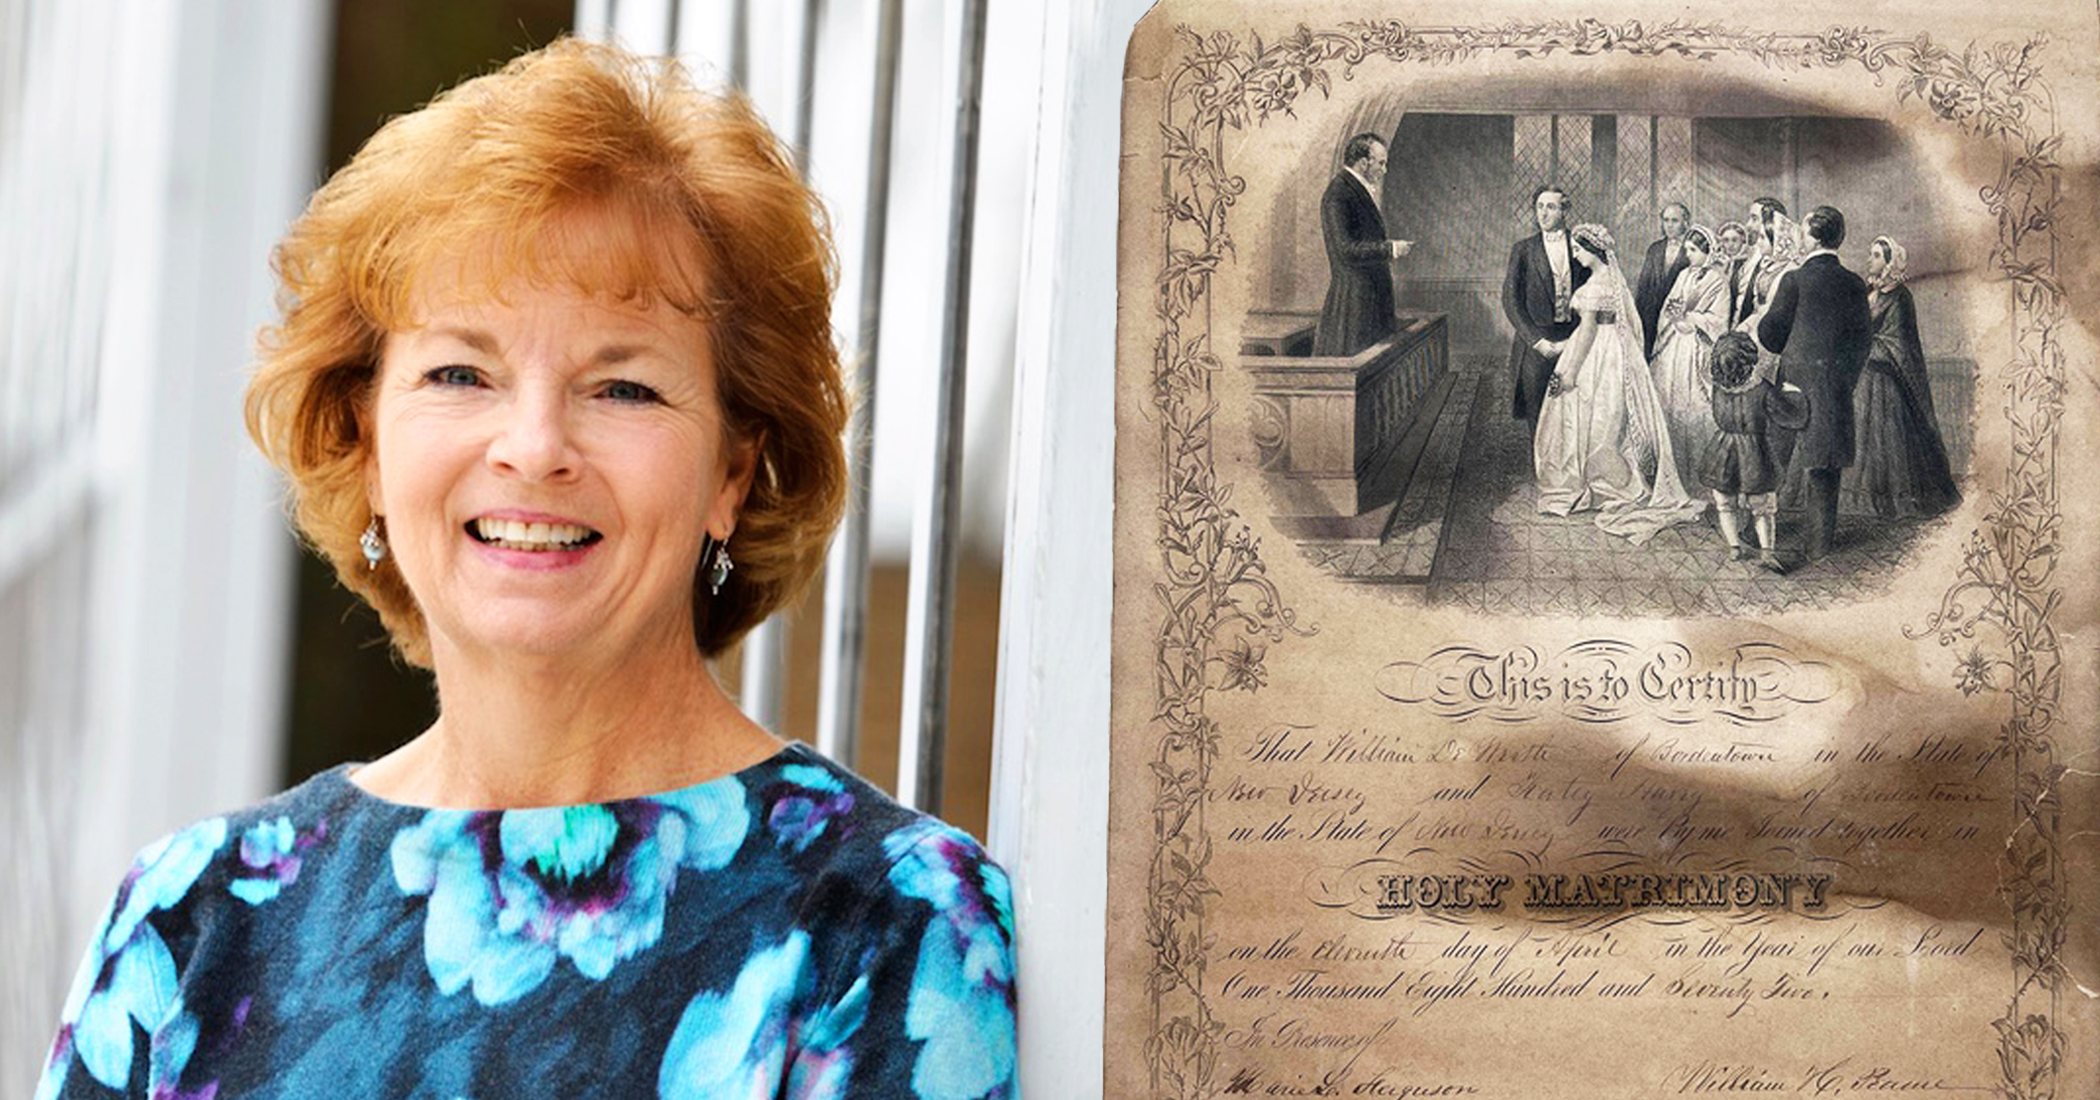 This is to Certify
That William De of Bordentown in the State of
New Jersey and of Bordentown
in the State of New Jersey were by me Joined together in
HOLY MATRIMONY
on the Eleventh day of April in the Year of our Lord
One Thousand Eight Hundred and Seventy Five.
In Presence of
Ferguson
William H.